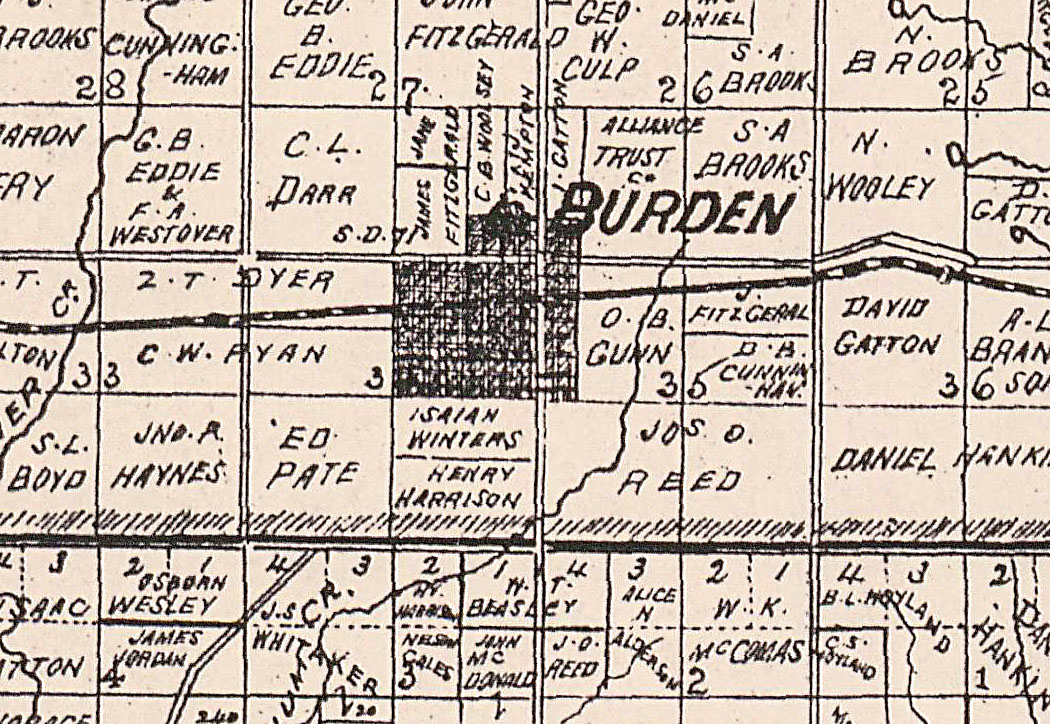 BROOKS
28
CUNNING-
-HAM
GEO.
B.
EDDIE
27
FITZGERALD
GEO.
W.
CULP
DANIEL
S.A
BROOKS
26
N.
BROOKS
25
G.B.
EDDIE
&
F.A.
WESTOVER
C.L.
DARR
S.D. 71
JAMES
JANE
FITZGERALD
C.B. WOOLSEY
HEMPTON
GATTON
ALLIANCE
TRUST
CO
S.A
BROOKS
N.
WOOLEY
D.
GATTO
BURDEN
Z.T. DYER
CR
C.W. RYAN
33
3
O.B.
GUNN
J.
FITZGERAL
D.B.
CUNNIN-
-HAM.
35
DAVID
GATTON
36
A.L.
BRAN
SON
S.L.
BOYD
JNO. R.
HAYNES
ED
PATE
ISAIAH
WINTERS
HENRY
HARRISON
JOS. O.
REED
DANIEL HANKI
3
2
1
4
3
2
1
4
3
2
1
4
3
2
ISAAC
OSBORN
WESLEY
J.S.
CR.
WHITAKER
HY.
W. T.
BEASLEY
ALICE
N
ALDERSON
W. K.
McCOMAS
B.L. HOYLAND
HANKIN
DAN
JAMES
JORDAN
4
NELSON
GALES
3
JOHN
MC
DONALD
J.O.
REED
2
C.S.
HOYLAND
1
240
Z 20